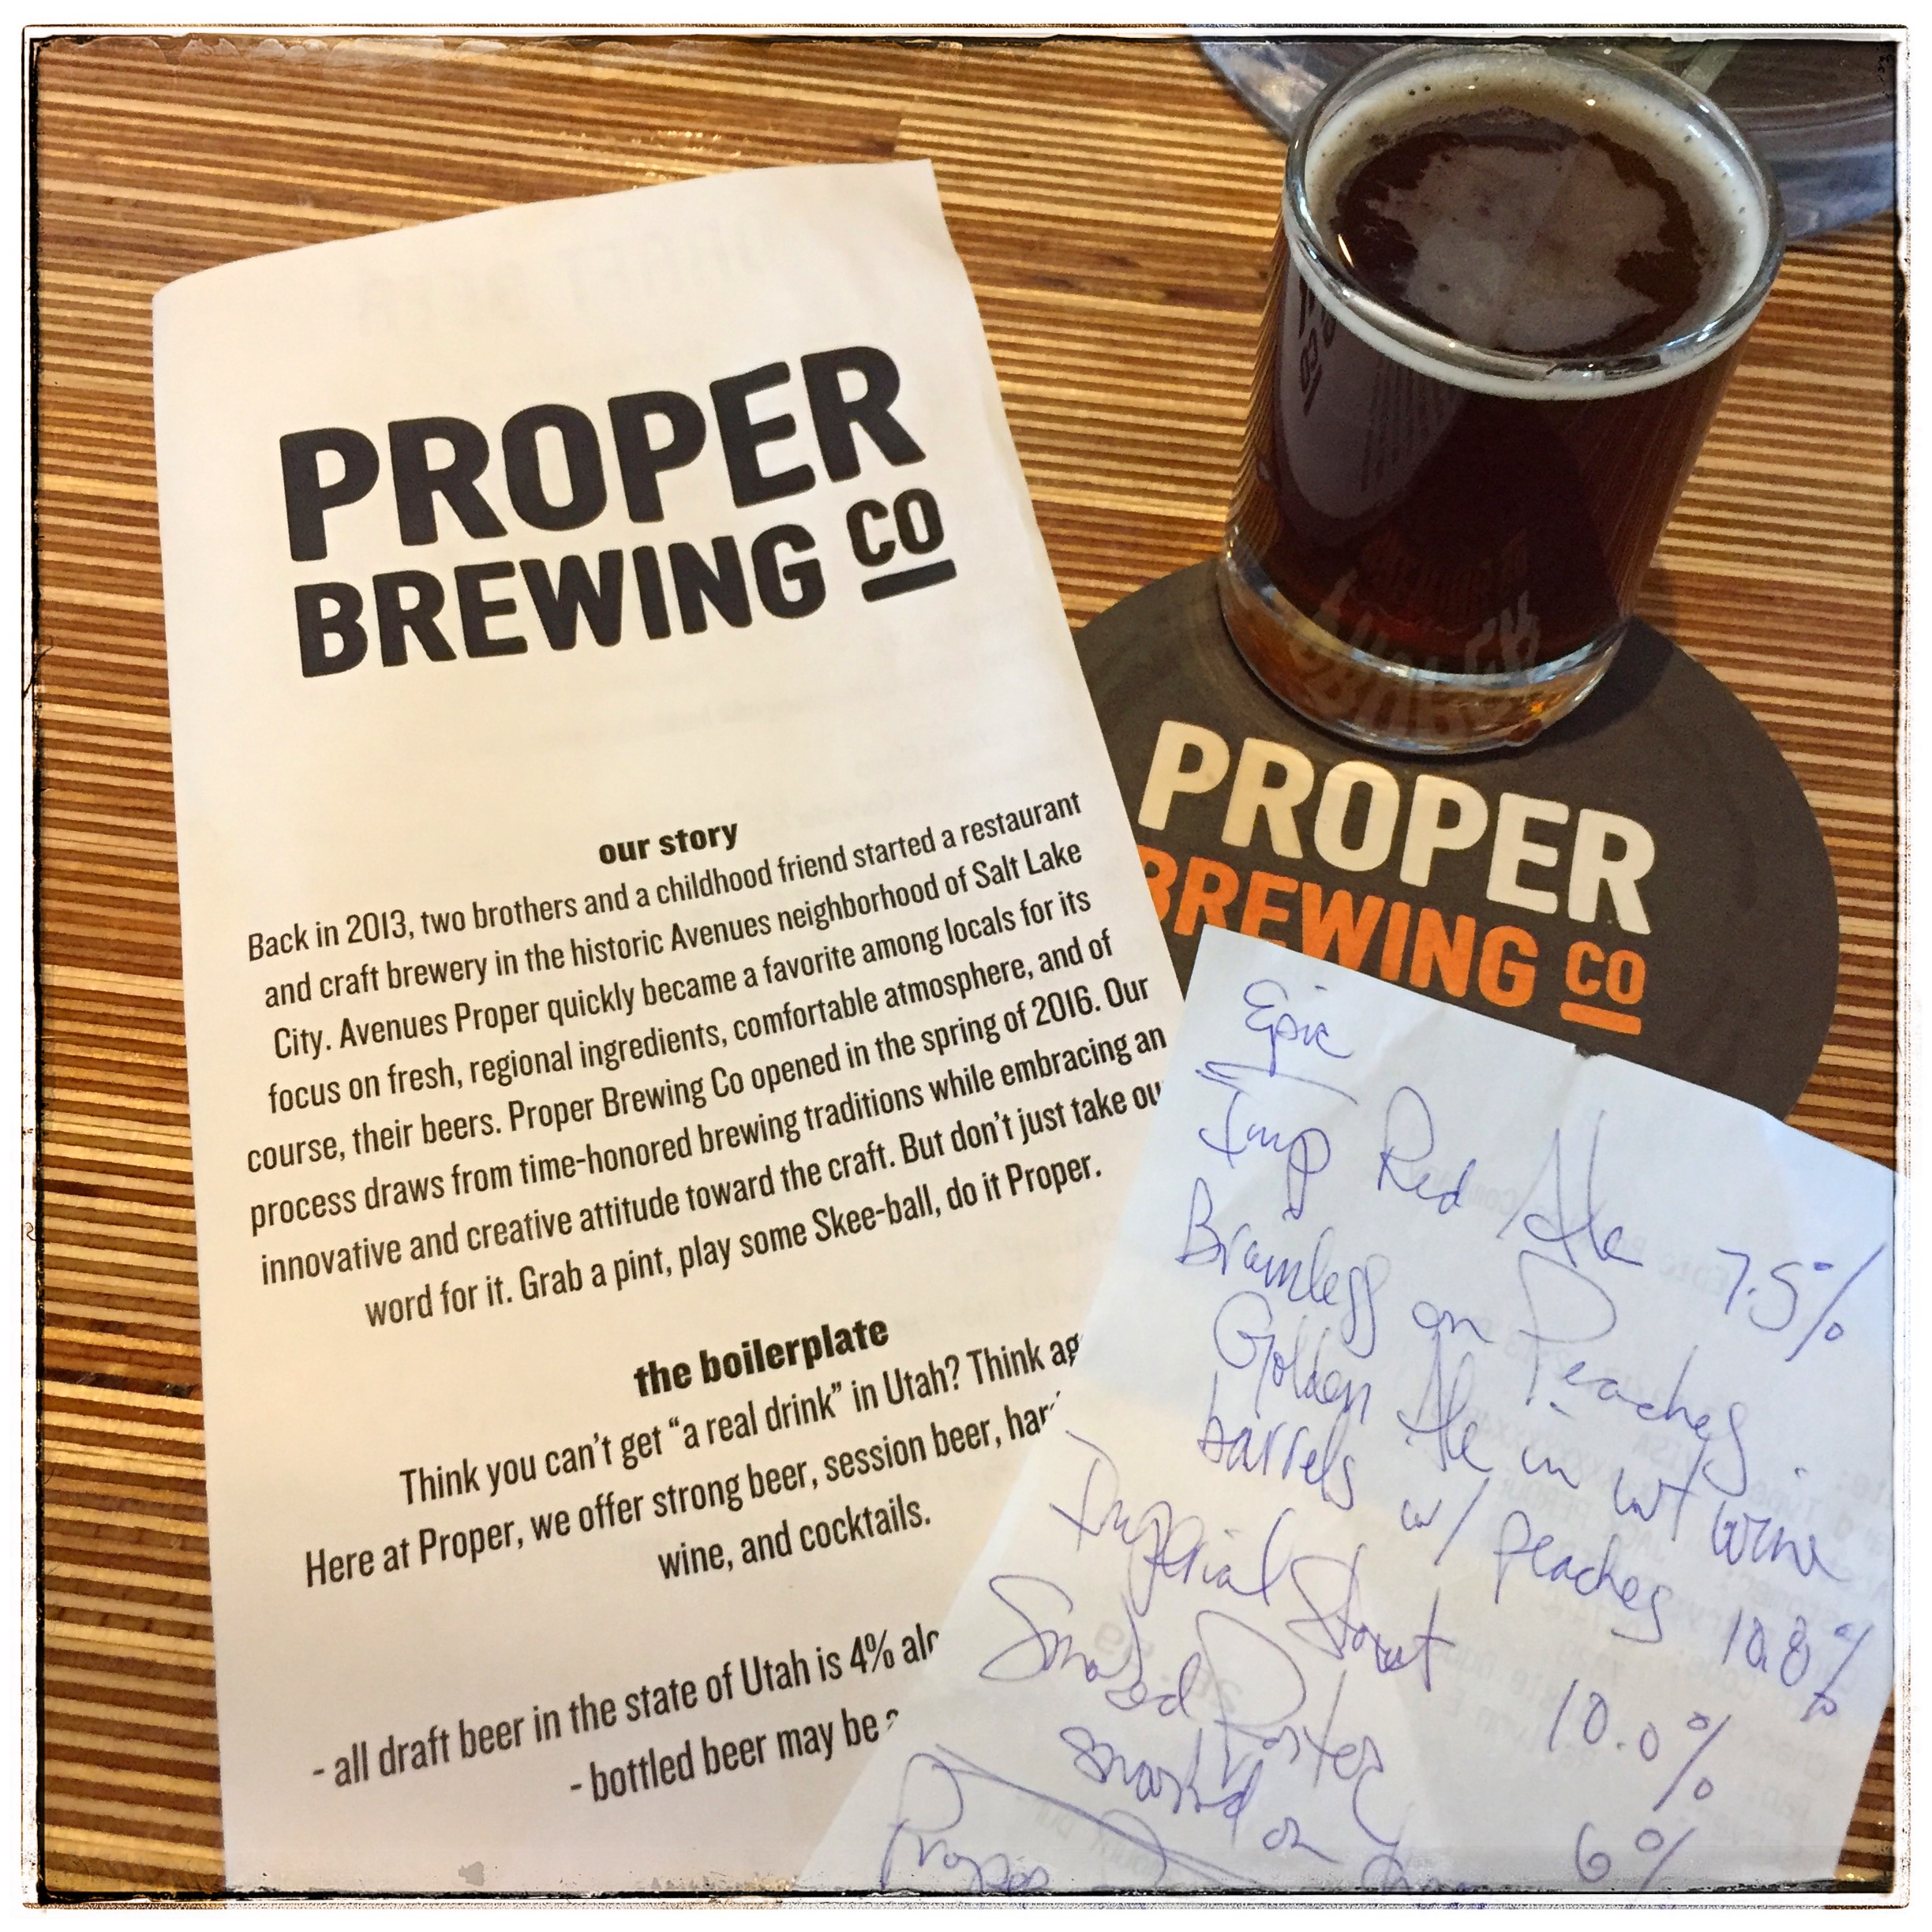 PROPER
BREWING CO
our story
Back in 2013, two brothers and a childhood friend started a restaurant
and craft brewery in the historic Avenues neighborhood of Salt Lake
City. Avenues Proper quickly became a favorite among locals for its
focus on fresh, regional ingredients, comfortable atmosphere, and of
course, their beers. Proper Brewing Co opened in the spring of 2016. Our
process draws from time-honored brewing traditions while embracing an
innovative and creative attitude toward the craft. But don't just take ou
word for it. Grab a pint, play some Skee-ball, do it Proper.
the boilerplate
Think you can't get "a real drink" in Utah? Think ag
Here at Proper, we offer strong beer, session beer, har
wine, and cocktails.
- all draft beer in the state of Utah is 4% alc
- bottled beer may be
PROPER
BREWING CO
Epic
Imp Red Ale 7.5%
Brainless on Peaches
Golden Ale in wt wine
barrels w/ peaches 10.8%
Imperial Stout 10.0%
Smoked Porter 6%
smoked on
Proper